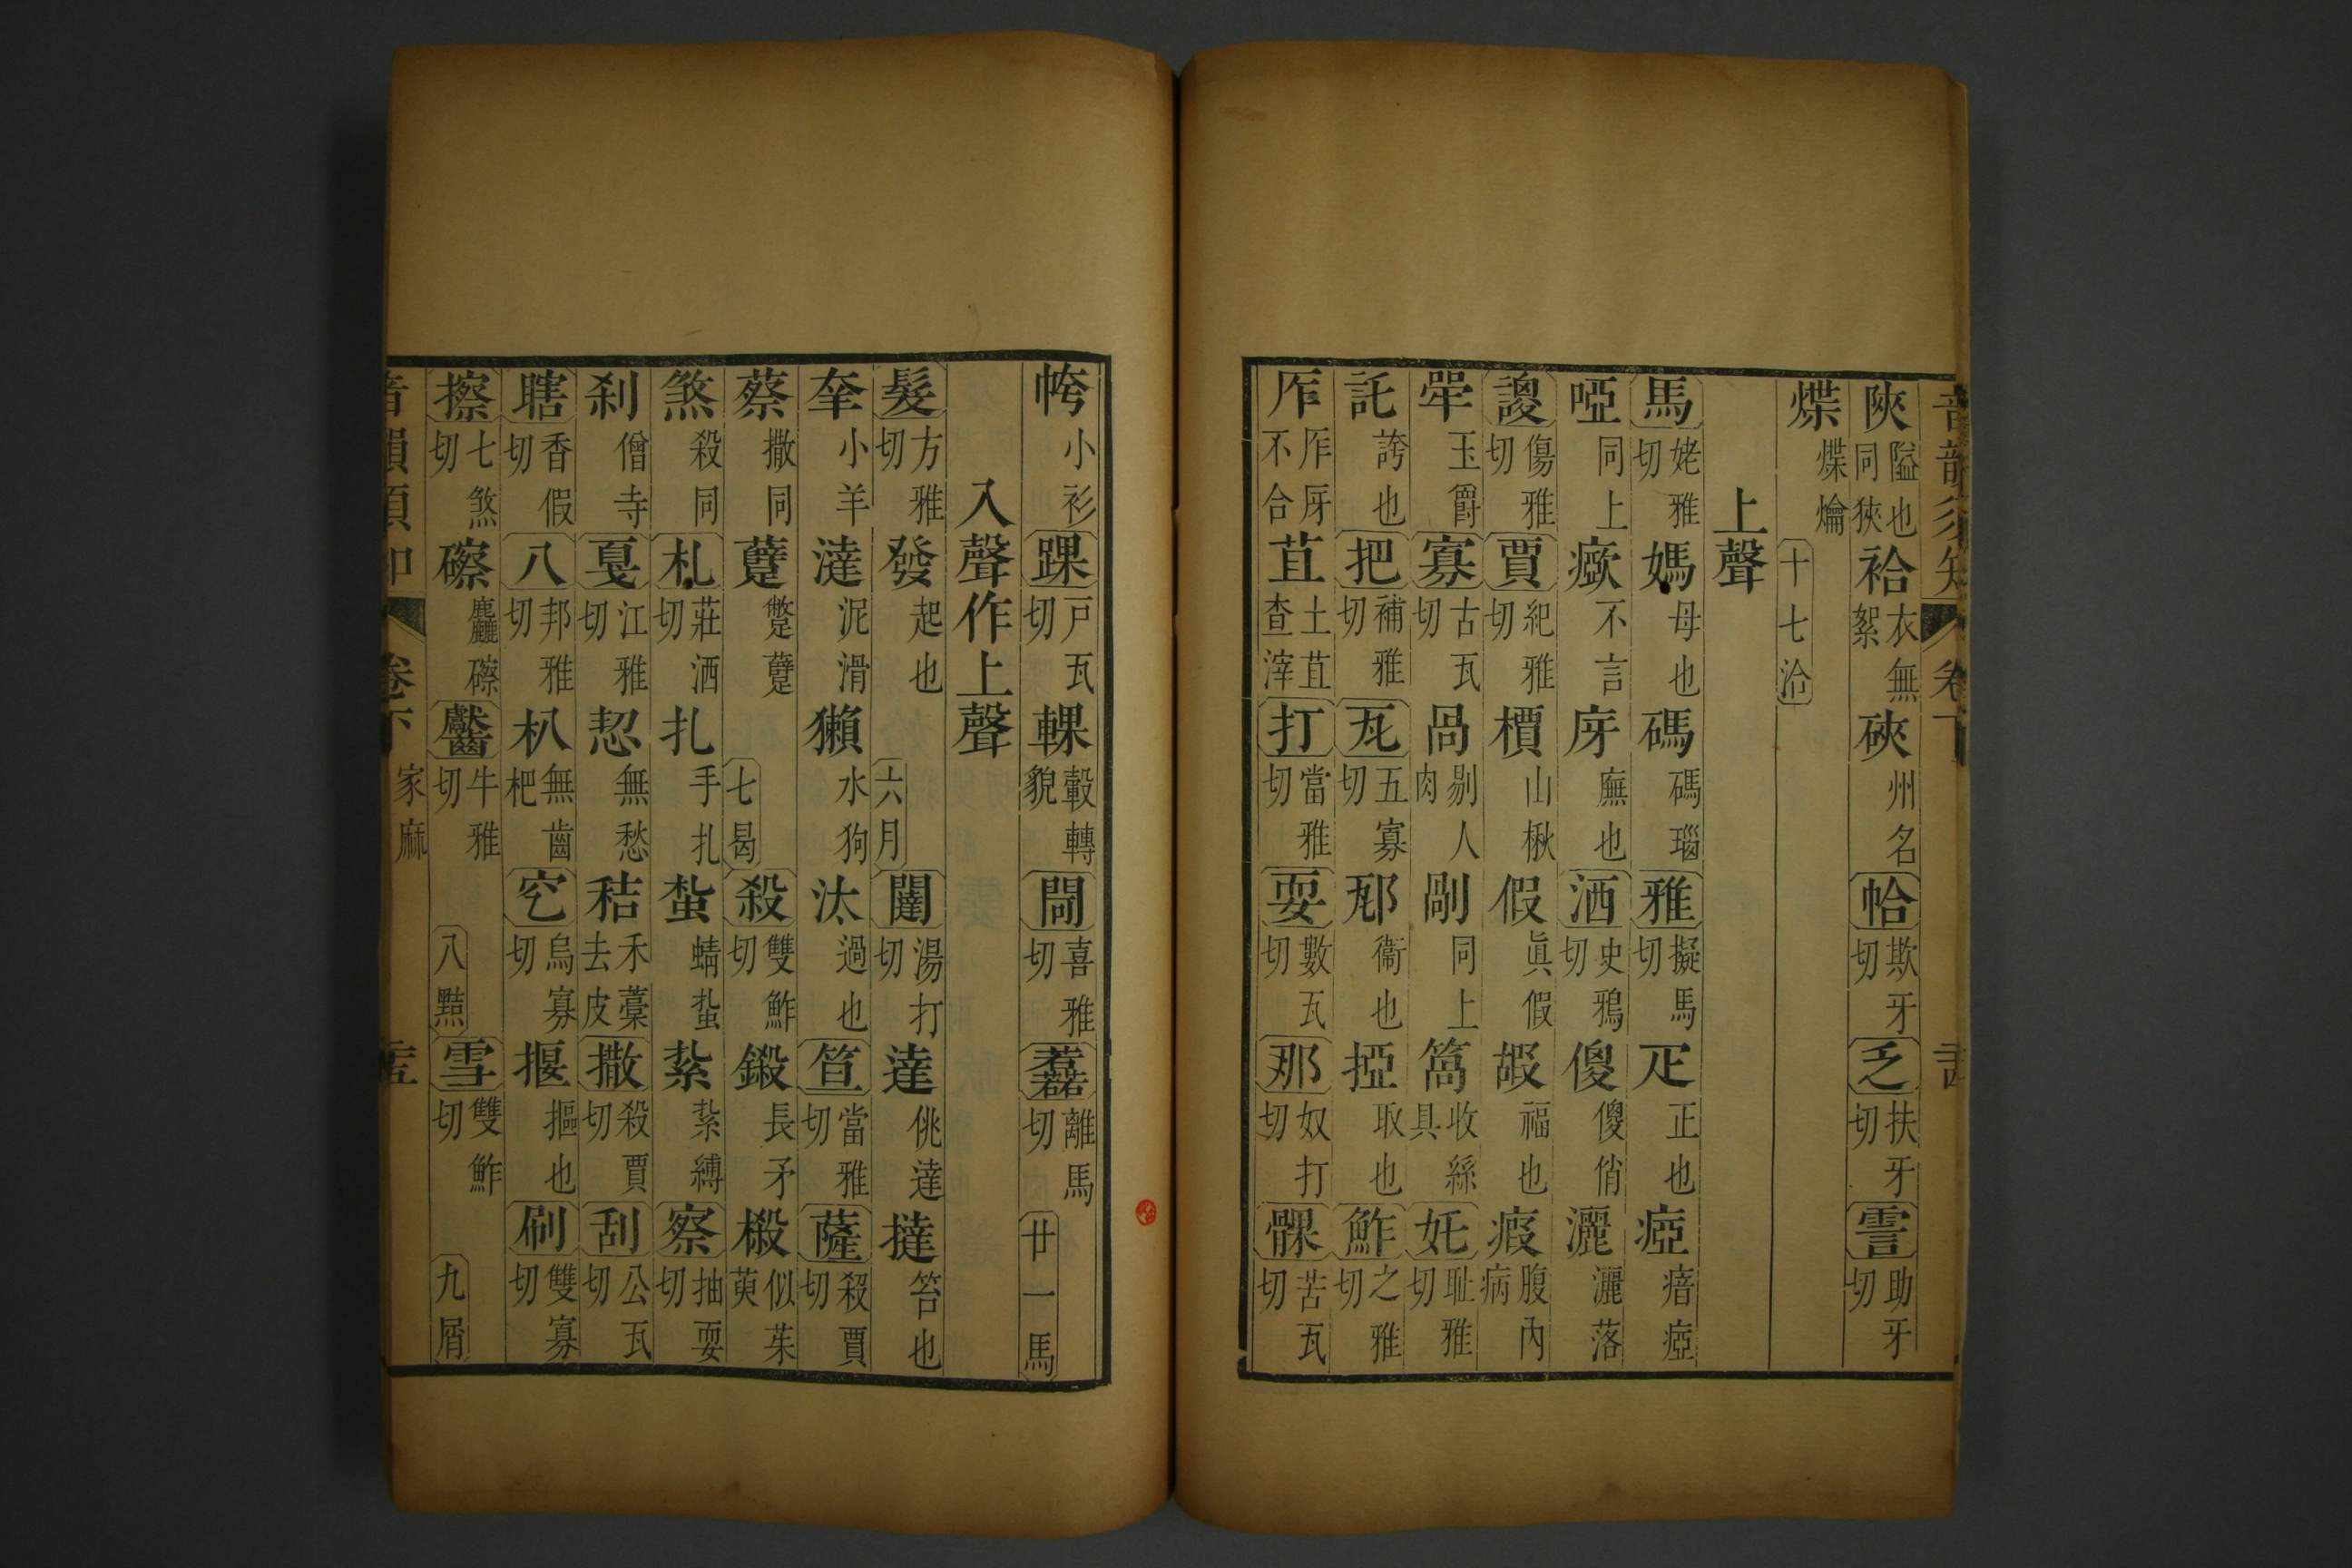 音韻須知 卷下
陜隘也同狹袷衣無絮硤州名帢欺牙切乏扶牙切䨟助牙切
煠煠爚十七洽
上聲
馬姥雅切媽母也碼碼瑙雅擬馬切疋正也瘂瘖瘂
啞同上㿉不言庌廡也洒史鴉切傻傻俏灑灑落
謏傷雅切賈紀雅切檟山楸假眞假嘏福也瘕腹內病
斝玉爵寡古瓦切咼剔人肉剮同上簻收絲具奼恥雅切
託誇也把補雅切瓦五寡切邷衞也掗取也鮓之雅切
厏厏厊不合苴土苴查滓打當雅切耍數瓦切那奴打切髁苦瓦切
帹小衫踝戸瓦切輠轂轉貌閜喜雅切䕢離馬切廿一馬
入聲作上聲
髮方雅切發起也六月闥湯打切達佻達撻笞也
羍小羊澾泥滑獺水狗汰過也笪當雅切薩殺賈切
蔡撒同躠蹩躠七曷殺雙鮓切鎩長矛樧似茱萸
煞殺同札莊洒切扎手扎蚻蜻蚻紮紮縛察抽耍切
刹僧寺戛江雅切恝無愁秸禾藁去皮撒殺賈切刮公瓦切
瞎香假切八邦雅切朳無齒杷穵烏寡切揠摳也刷雙寡切
擦七煞切礤麤礤齾牛雅切八黠雪雙鮓切九屑
音韻須知 卷下 家麻